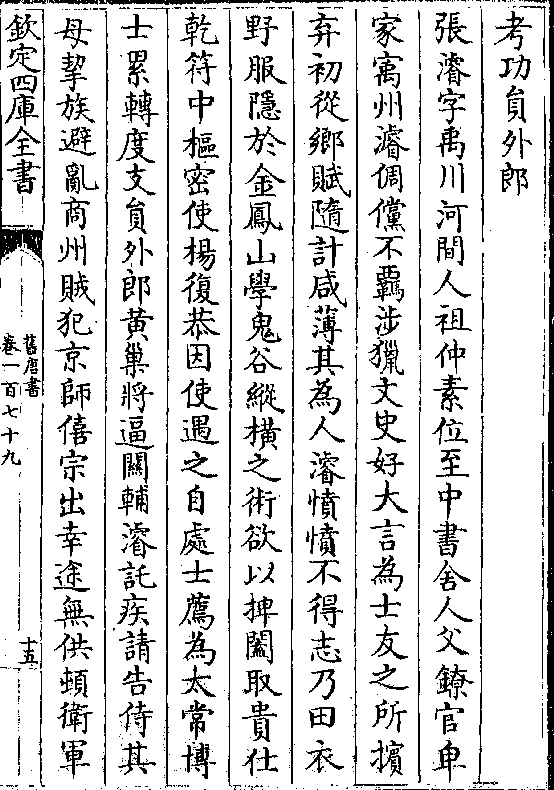 考功員外郎
張濬字禹川河間人祖仲素位至中書舍人父鐐官卑
家寓州濬倜儻不羈涉獵文史好大言為士友之所擯
弃初從鄉賦隨計咸薄其為人濬憤憤不得志乃田衣
野服隱於金鳳山學鬼谷縱橫之術欲以捭闔取貴仕
乾符中樞密使楊復恭因使遇之自處士薦為太常博
士累轉度支員外郎黃巢將逼關輔濬託疾請告侍其
母挈族避亂商州賊犯京師僖宗出幸途無供頓衛軍
欽定四庫全書
舊唐書
卷一百七十九
十五